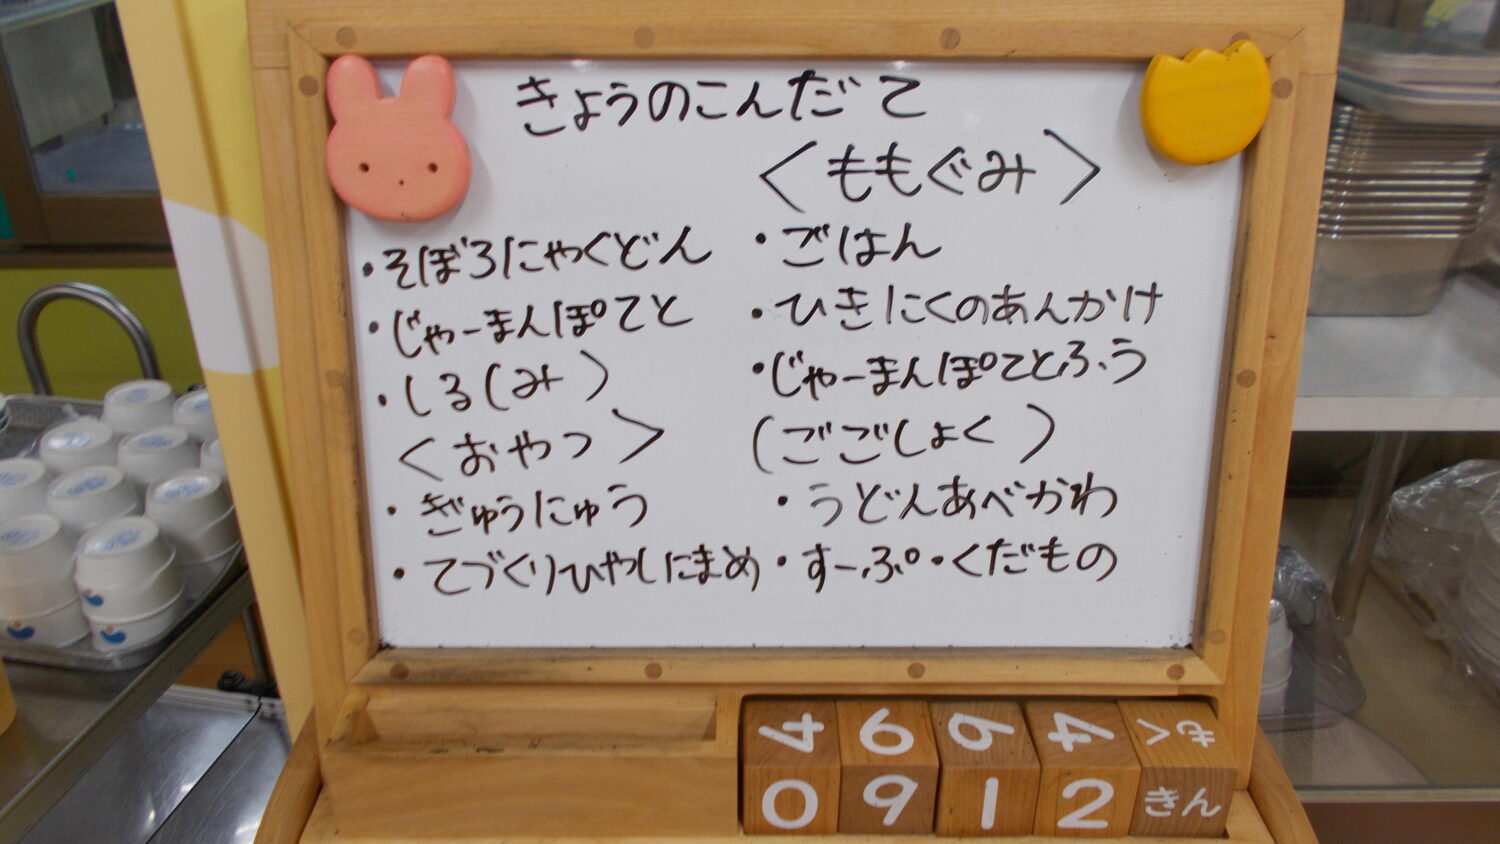 きょうのこんだて
・そぼろにゃくどん
・じゃーまんぽてと
・しる(みそ)
<おやつ>
・ぎゅうにゅう
・てづくりひやしにまめ
<ももぐみ>
・ごはん
・ひきにくのあんかけ
・じゃーまんぽてとふう
(ごごしょく)
・うどんあべかわ
・すーぷ・くだもの
4 6 6 4 もく
0 9 1 2 きん